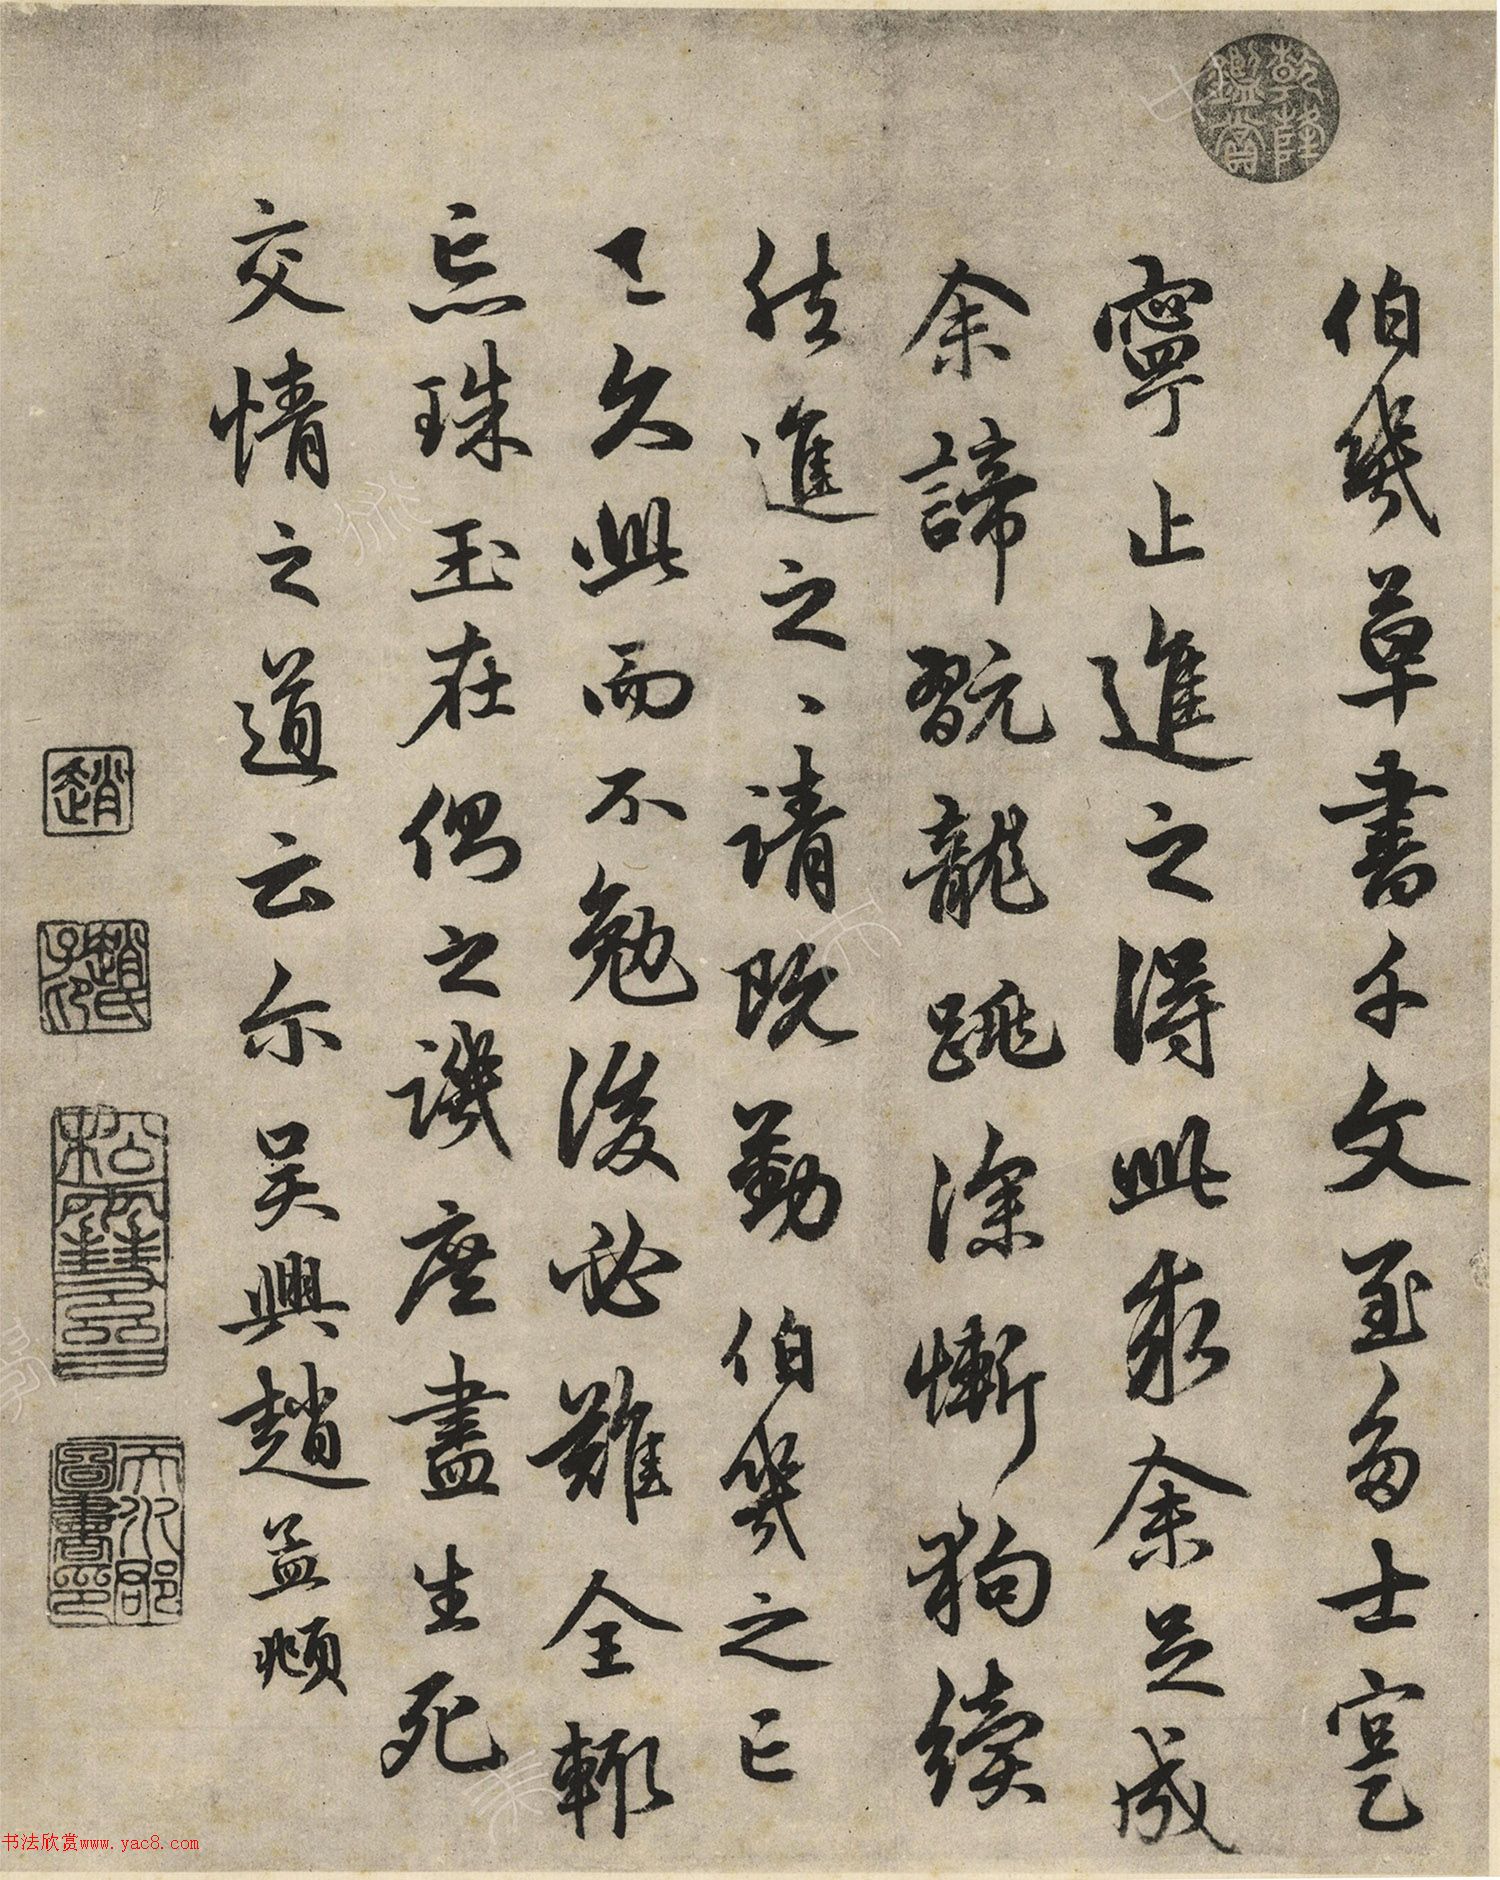 乾隆鑑賞
伯幾草書千文至多士寔
寧止進之得此求余足成
余諦翫龍跳深慚狗續
然進之、請既勤伯幾之亡
久此而不勉後必難全輒
忘珠玉在側之譏庶盡生死
交情之道云尔吳興趙孟頫
趙
趙氏子昂
天水郡圖書印
书法欣赏www.yac8.com